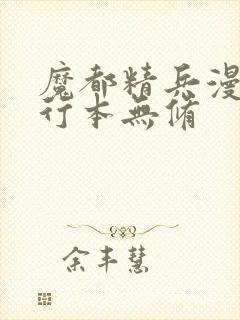 魔都精兵漫
行本無脩
余丰慧